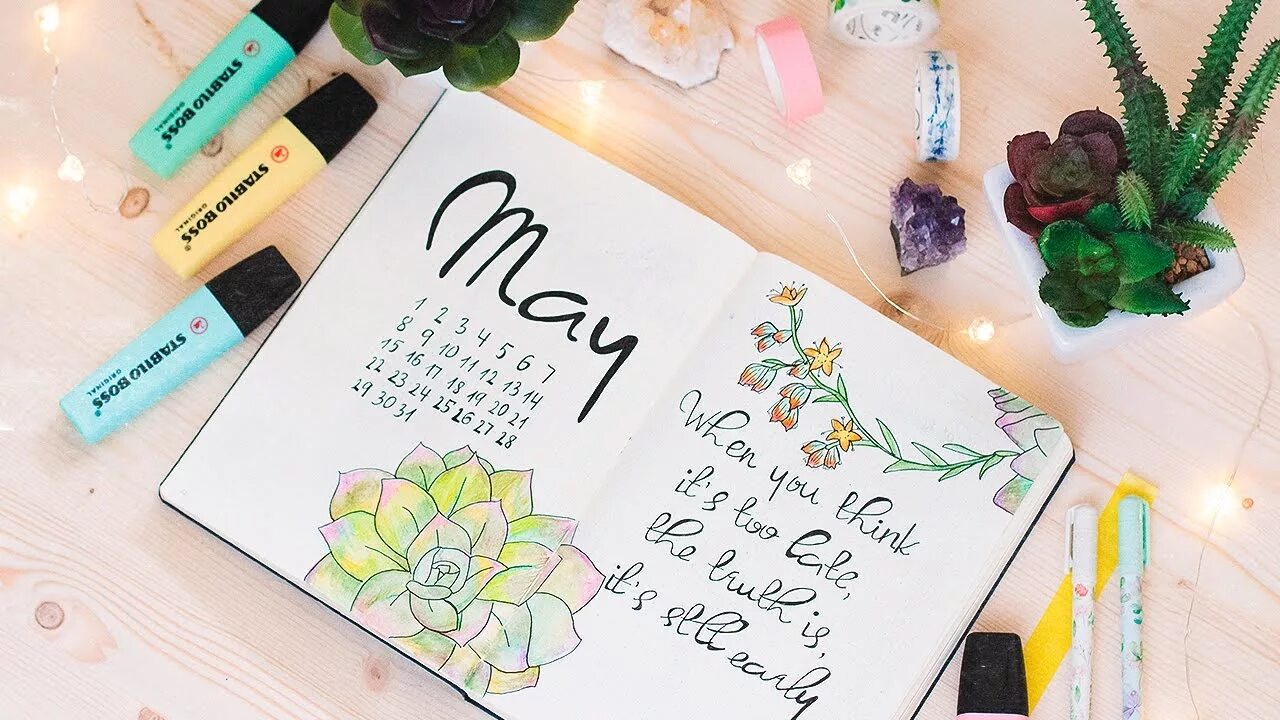 STABILO BOSS
ORIGINAL
STABILO BOSS
ORIGINAL
STABILO BOSS
ORIGINAL
May
1 2 3 4 5 6 7
8 9 10 11 12 13 14
15 16 17 18 19 20 21
22 23 24 25 26 27 28
29 30 31
When you think
it's too late,
the truth is,
it's still early